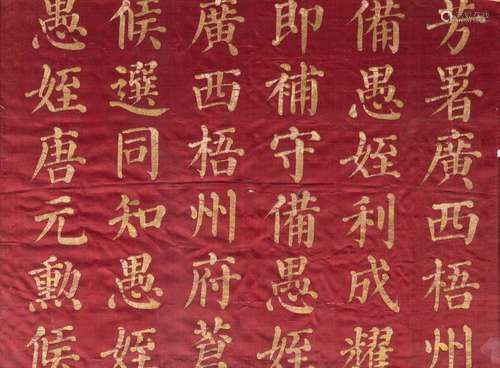 方署廣西梧州
備愚姪利成耀
即補守備愚姪
廣西梧州府蒼
候選同知愚姪
愚姪唐元勳候